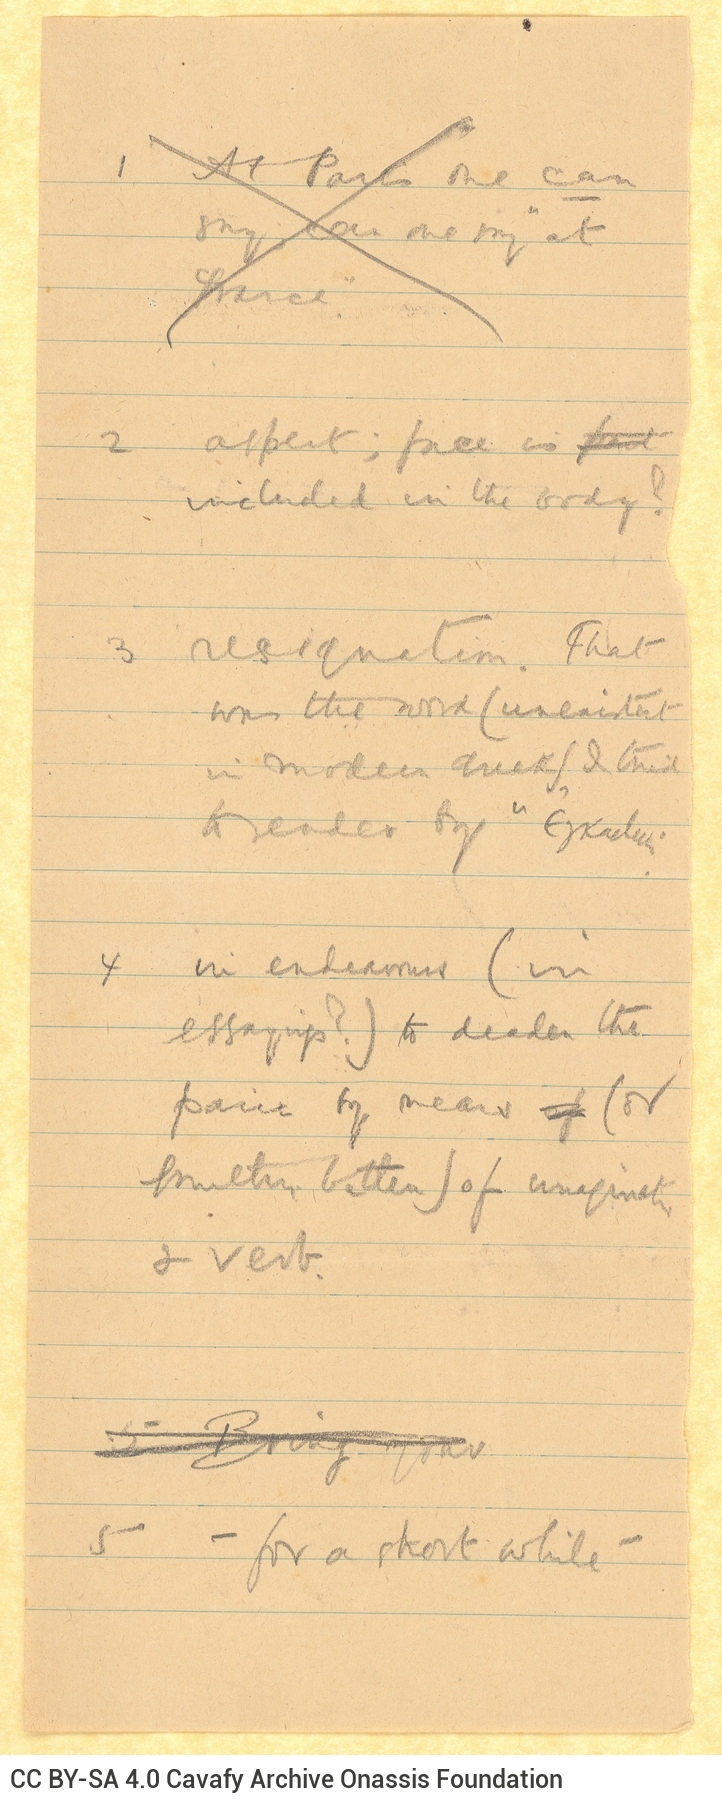 1 At Paris one can
say, can one say "at
France".
2 aspect; face is
included in the body?
3 resignation. That
was the word (inexistent
in modern Greek) I tried
to render by "Εγκατ
4 in endeavours (in
essayings?) to deaden the
pain by means of (or
better) of imaginat.
& verb.
5 Bring your
5 – for a short while –
CC BY-SA 4.0 Cavafy Archive Onassis Foundation